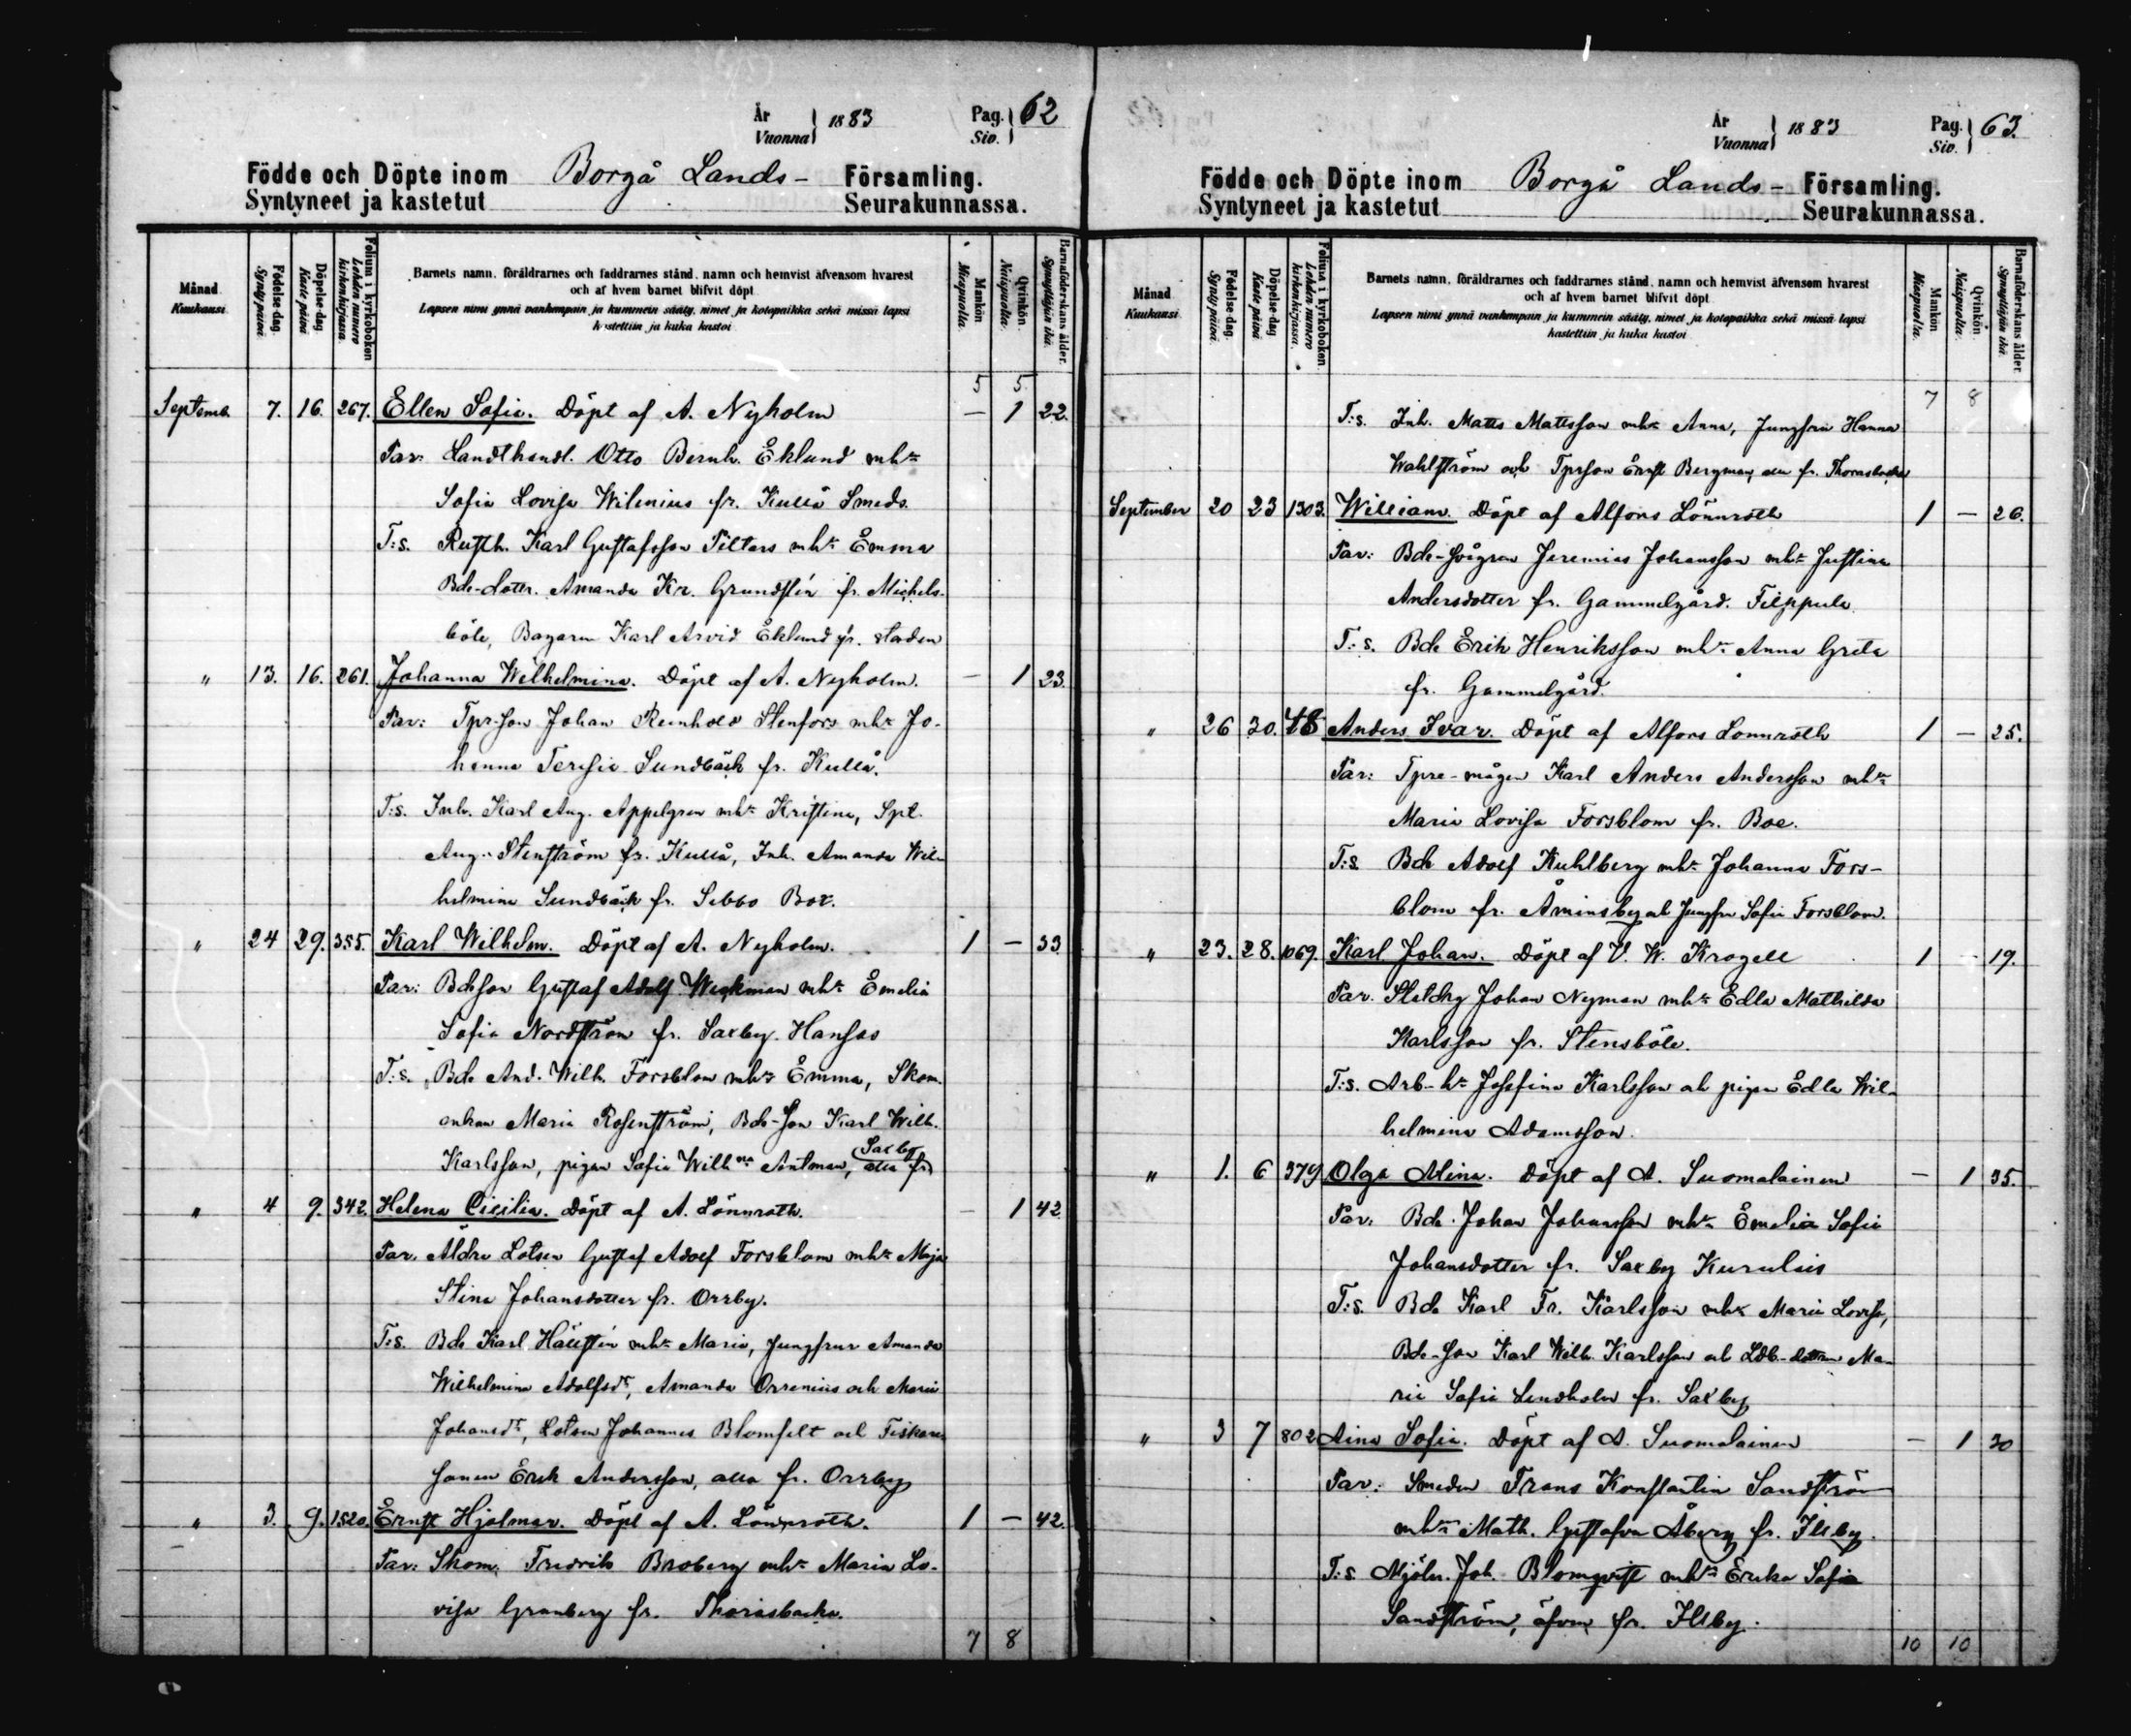 År
Vuonna } 1883
Pag.
Siv. } 62
Födde och Döpte inom Borgå Lands- Församling.
Syntyneet ja kastetut Seurakunnassa.
Månad
Kuukausi
Födelse-dag
Synty päivä.
Döpelse-dag
Kaste päivä
Folium i kyrkoboken
Lehden numero kirkonkirjassa.
Barnets namn, föräldrarnes och faddrarnes stånd, namn och hemvist äfvensom hvarest
och af hvem barnet blifvit döpt
Lapsen nimi ynnä vanhempain ja kummein sääty, nimet ja kotopaikka sekä missä lapsi
kastettiin ja kuka kastoi
Mankön
Miespuolta.
Qvinkön
Naispuolta.
Barnaföderskans ålder.
Synnyttäjän ikä.
5 5
Septemb. 7. 16. 267. Ellen Sofia. Döpt af A. Nyholm — 1 22.
Par: Landthandl. Otto Bernh. Eklund mhr
Sofia Lovisa Wilenius fr. Kullå Smeds.
T:s. Rusth. Karl Gustafsson Pilters mhr Emma
Bde-dottr. Amanda Kr. Grundstén fr. Michels-
böle, Bagaren Karl Arvid Eklund fr. staden
" 13. 16. 261. Johanna Wilhelmina. Döpt af A. Nyholm. — 1 23.
Par: Tpr-son Johan Reinhold Stenfors mhr Jo-
hanna Teresia Sundbäck fr. Kullå.
T:s. Inh. Karl Aug. Appelgren mhr Kristina, Spl.
Aug. Stenström fr. Kullå, Inh. Amanda Wil-
helmina Sundbäck fr. Sibbo Box.
" 24 29. 355. Karl Wilhelm. Döpt af A. Nyholm. 1 — 33
Par: Bdeson Gustaf Adolf Weckman mhr Emelia
Sofia Nordström fr. Saxby Hansas
T:s. Bde And. Wilh. Forsblom mhr Emma, Skom.
enkan Maria Rosenström, Bde-son Karl Wilh.
Saxby
Karlsson, pigan Sofia Wilhna Antman, alla fr.
" 4 9. 342. Helena Cicilia. Döpt af A. Lönnroth. — 1 42
Par. Äldre Lotsen Gustaf Adolf Forsblom mhr Maja
Stina Johansdotter fr. Orrby.
T:s. Bde Karl Hällstén mhr Maria, Jungfrur Amanda
Wilhelmina Adolfsdr, Amanda Orrenius och Maria
Johansdr, Lotsen Johannes Blomfelt och Fiskare-
sonen Erik Andersson, alla fr. Orrby
" 3. 9. 1520. Ernst Hjalmar. Döpt af A. Lönnroth. 1 — 42.
Par: Skom. Fredrik Broberg mhr Maria Lo-
visa Granberg fr. Thorasbacka.
7 8
År
Vuonna } 1883
Pag.
Siv. } 63.
Födde och Döpte inom Borgå Lands- Församling.
Syntyneet ja kastetut Seurakunnassa.
Månad
Kuukausi
Födelse-dag
Synty päivä.
Döpelse-dag
Kaste päivä
Folium i kyrkoboken.
Lehden numero kirkonkirjassa.
Barnets namn, föräldrarnes och faddrarnes stånd, namn och hemvist äfvensom hvarest
och af hvem barnet blifvit döpt
Lapsen nimi ynnä vanhempain ja kummein sääty, nimet ja kotopaikka sekä missä lapsi
kastettiin ja kuka kastoi
Mankön
Miespuolta.
Qvinkön
Naispuolta.
Barnaföderskans ålder
Synnyttäjän ikä.
7 8
T:s. Inh. Matts Mattsson mhr Anna, Jungfrun Hanna
Wahlström och Tprson Ernst Bergman, alla fr. Thorasbacka
September 20 23 1303. William. Döpt af Alfons Lönnroth 1 — 26.
Par: Bde-svågren Jeremias Johansson mhr Justina
Andersdotter fr. Gammelgård. Filppula
T:s. Bde Erik Henriksson mhr Anna Greta
fr. Gammelgård.
" 26 30. 48 Anders Ivar. Döpt af Alfons Lönnroth 1 — 25.
Par: Tpre-mågen Karl Anders Andersson mhr
Maria Lovisa Forsblom fr. Boe.
T:s Bde Adolf Kuhlberg mhr Johanna Fors-
blom fr. Åminsby och Jungfru Sofia Forsblom.
" 23. 28. 1069. Karl Johan. Döpt af V. W. Krogell 1 — 19.
Par. Statdrg Johan Nyman mhr Edla Mathilda
Karlsson fr. Stensböle.
T:s. Arb-hr Josefina Karlsson och pigan Edla Wil-
helmina Adamsson.
" 1. 6 379 Olga Alina. Döpt af A. Suomalainen — 1 35.
Par: Bde. Johan Johansson mhr Emelia Sofia
Johansdotter fr. Saxby Kurulais
T:s. Bde Karl Fr. Karlsson mhr Maria Lovisa,
Bde-son Karl Wilh. Karlsson och Ldb-dottren Ma-
ria Sofia Lindholm fr. Saxby
" 3 7 802 Aina Sofia. Döpt af A. Suomalainen — 1 30
Par: Smeden Frans Konstantin Sandström
mhr Math. Gustafva Åberg fr. Ilsby.
T:s Mjöln. Joh. Blomqvist mhr Erika Sofia
Sandström, äfven fr. Ilsby.
10 10